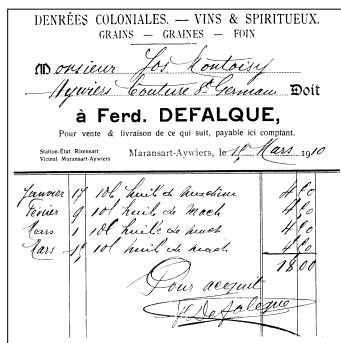 DENRÉES COLONIALES. — VINS & SPIRITUEUX.
GRAINS — GRAINES — FOIN
Monsieur Jos Montoisy
Aywiers Couture St Germain Doit
à Ferd. DEFALQUE,
Pour vente & livraison de ce qui suit, payable ici comptant.
Station-État Rixensart
Vicinal Maransart-Aywiers
Maransart-Aywiers, le 15 Mars 1910
Janvier 17 10l huile de machine 4 50
Février 9 10l huil de mach 4 50
Mars 1 10l huile de mach 4 50
Mars 15 10l huil de mach 4 50
18 00
Pour acquit
Defalque